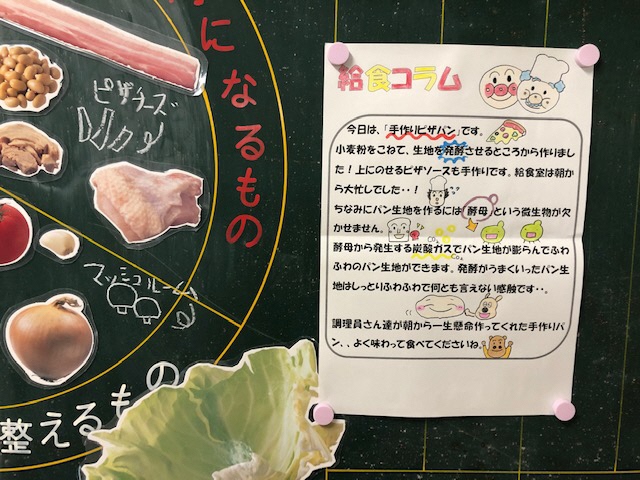 になるもの
ピザチーズ
マッシュルーム
整えるもの
給食コラム
今日は、「手作りピザパン」です。
小麦粉をこねて、生地を発酵させるところから作りまし
た！上にのせるピザソースも手作りです。給食室は朝か
ら大忙しでした・・！
ちなみにパン生地を作るには酵母という微生物が欠
かせません。
酵母から発生する炭酸ガスでパン生地が膨らんでふわ
ふわのパン生地ができます。発酵がうまくいったパン生
地はしっとりふわふわで何とも言えない感触です・・。
調理員さん達が朝から一生懸命作ってくれた手作りパ
ン、、よく味わって食べてくださいね。